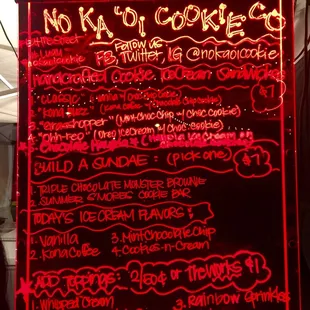 NO KA 'OI COOKIE CO
FOLLOW US
FB, TWITTER, IG @nokaoicookie
Handcrafted Cookie IceCream Sandwiches
$7
1. Classic
2. Kona
3. Grasshopper (Mint-Choc Chip w/ Choc Cookie)
4. "Oh-reo" (Oreo IceCream w/ Choc Cookie)
BUILD A SUNDAE: (pick one) $7
1. TRIPLE CHOCOLATE MONSTER BROWNIE
2. SUMMER S'MORES COOKIE BAR
TODAY'S ICE CREAM FLAVORS:
1. Vanilla 3. Mint Chocolate Chip
2. Kona Coffee 4. Cookies-n-Cream
ADD TOPPINGS: 2/50¢ or The Works $1
1. Whipped Cream 3. Rainbow Sprinkles